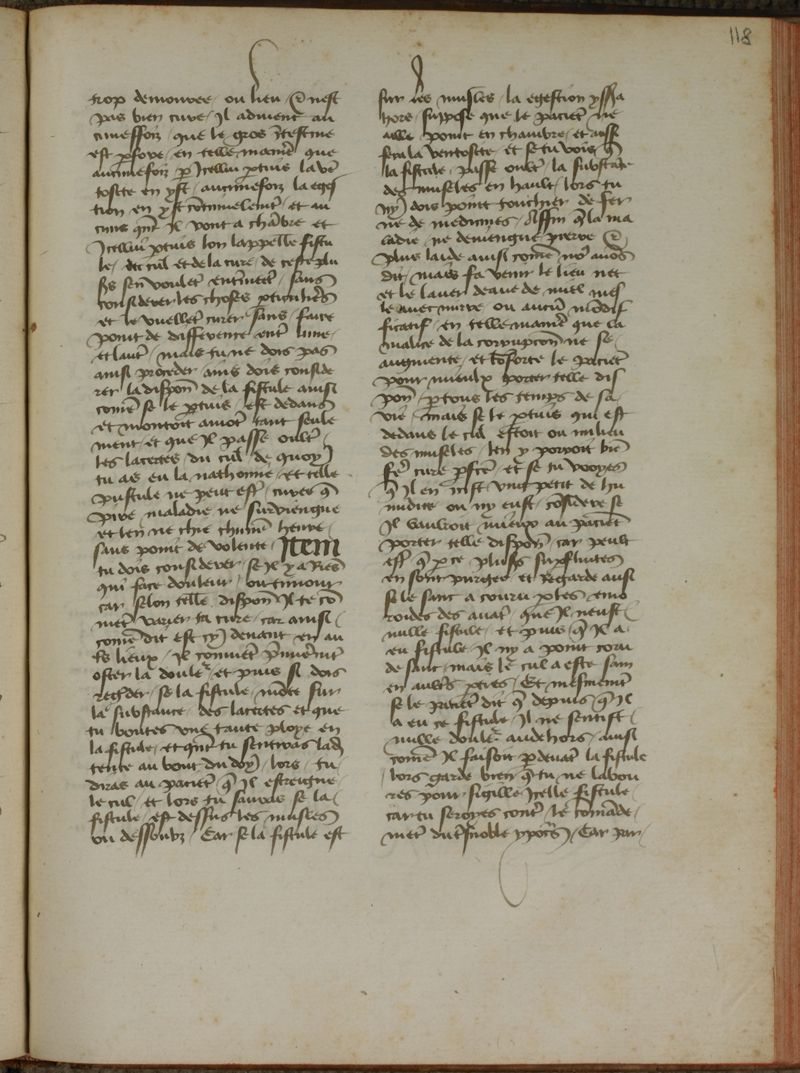 118
trop demouree ou lieu & nest
pas bien cure Il advient au
cuneffoiz que le gros Itestine
est psore en telle manie que
aucuneffoiz p Icelluj ptuis la ve
tosite en yst aucuneffoiz la eges
tion en yst cotinuelemet et au
cuns qnt Il vont a chabre et
Icelluj ptuis lon lappelle fistu
le du cul et de la cure de ceste plu
srs sen voulet entmect sans
considerer les choses pticulieres
et le vuellet curer sans faire
point de difference ent lune
et laut mais tu ne dois pas
ainsi proceder ains dois conside
rer la dispon de la fistule ainsi
come se le ptuis est dedans
et montoit amot tant seule
ment et que Il passe oult
les lacertes du cul de quoy
tu as eu la nathomie et telle
fistule ne peut est curee q
pire maladie ne surviengne
et len ne chie chune heure
sans point de volente Item
tu dois considerer se Il y a Ries
qui face douleur ou tumour
car selon telle dispon Il te co
uiet varier ta cure car ainsi
come dit est cy devant en au
ts lieux Il conviet primeremt
oster la doule et puis si dois
regder se la fistule monte sur
la substance des lacertes et que
tu boutes une tante ploye en
la fistule et qnt tu sentiras lad
tente au bout du doy lors tu
diras au paciet q Il estreigne
le cul et lors tu sauras se la
fistule est dessus les muscles
ou dessoubz Car se la fistule est
sur les muscles la egestion yssra
hors suppose que le paciet ne
aille point en chambre et aussi
fera la ventosite et se tu vois q
la fistule passe oult la substace
des muscles en hault lors tu
ny dois point touchier de fer
ne de medicines Affin q la ma
ladie ne deviengne pieure &
plus laide ainsi come no avos
dit mais fa tenir le lieu net
et le laver deaue de miel mes
le avec mirre ou aucu modif
ficatif en telle manie que la
malice de la corrupcon ne se
augmente et coforte le paciet
pour mieulx porter telle dis
pon p tous les temps de sa
vie mais se le ptuis qui est
dedans le cul estoit ou milieu
des muscles len y porroit bie
fe cure pfcte et se tu voyes
q Il en yssist ung petit de hu
midite ou ny eust cosidere se
Il vauldroit mieux au paciet
porter telle dispon car peult
est q p ce plusrs supfluites
en sont purgees et Regarde aussi
se le sanc a couru p les emo
roides des avat que Il neust
nulle fistule et puis q Il a
eu fistule Il ny a point coru
de sanc mais le cul a este sain
en aults pties Et mesmemt
se le paciet dit q depuis q Il
a eu ce fistule Il ne sentist
nulle doule au dehors ainsi
come Il faisoit p devat la fistule
lors garde bien q tu ne labou
res pour sigille Icelle fistule
car tu feroyes cont le comade
met du tsnoble ypocs Car par